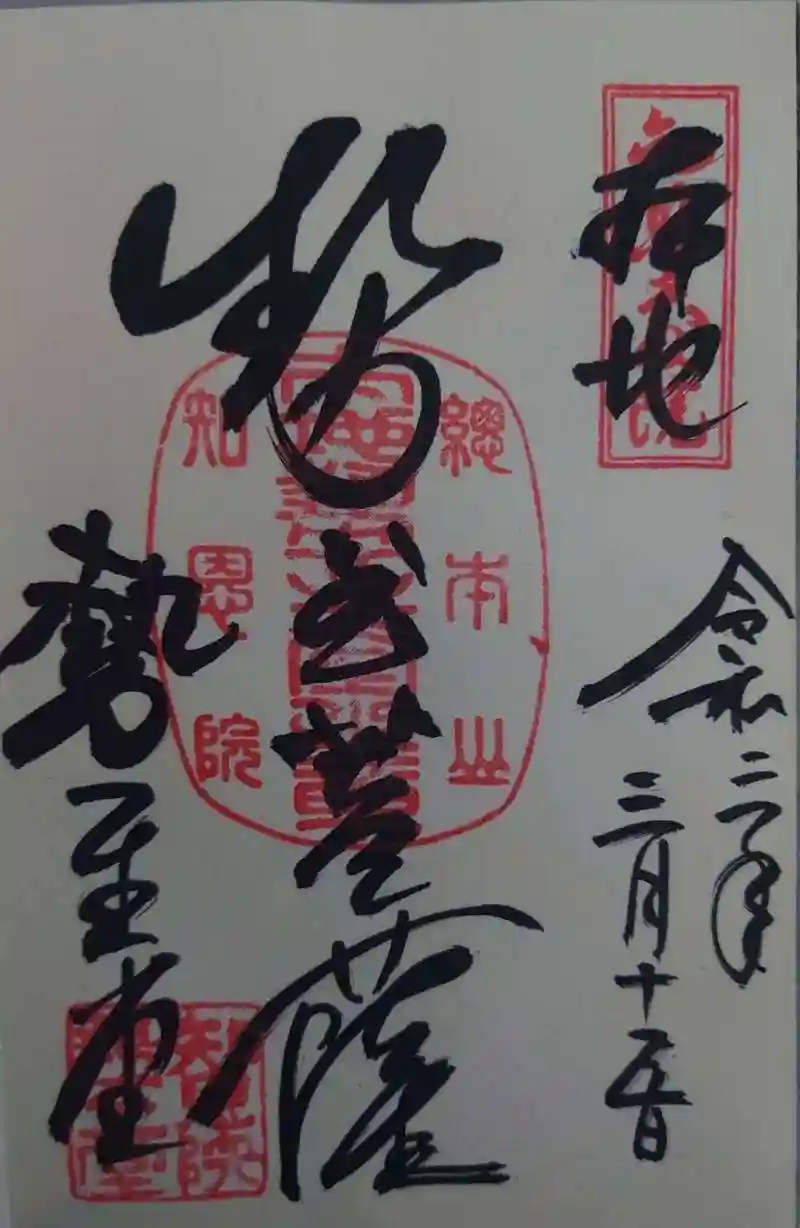 拝地
令和二年
三月十五日
勢至菩薩
總本山
知恩院
勢至堂